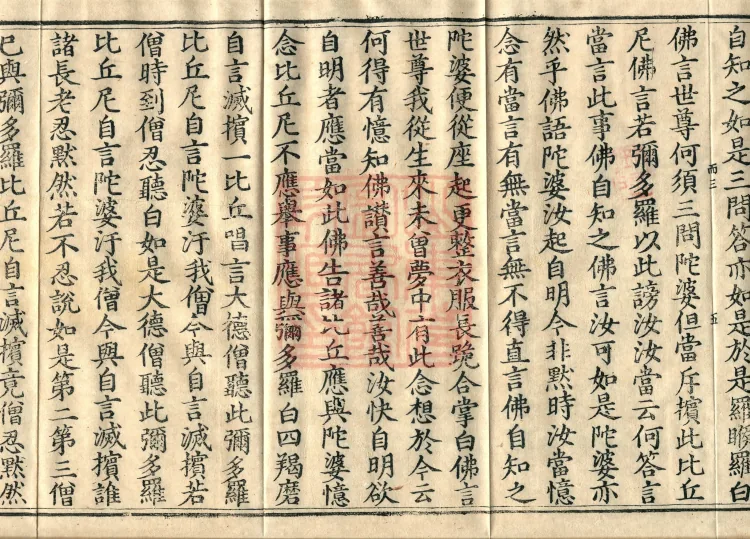 自知之如是三問答亦如是於是羅睺羅白
佛言世尊何須三問陀婆但當斥擯此比丘
尼佛言若彌多羅以此謗汝汝當云何答言
當言此事佛自知之佛言汝可如是陀婆亦
然乎佛語陀婆汝起自明今非默時汝當憶
念有當言有無當言無不得直言佛自知之
陀婆便從座起更整衣服長跪合掌白佛言
世尊我從生來未曾夢中有此念想於今云
何得有憶知佛讚言善哉善哉汝快自明欲
自明者應當如此佛告諸比丘應與陀婆憶
念比丘尼不應舉事應與彌多羅白四羯磨
自言滅擯一比丘唱言大德僧聽此彌多羅
比丘尼自言陀婆汙我僧今與自言滅擯若
僧時到僧忍聽白如是大德僧聽此彌多羅
比丘尼自言陀婆汙我僧今與自言滅擯誰
諸長老忍默然若不忍說如是第二第三僧
已與彌多羅比丘尼自言滅擯竟僧忍默然
而三
五